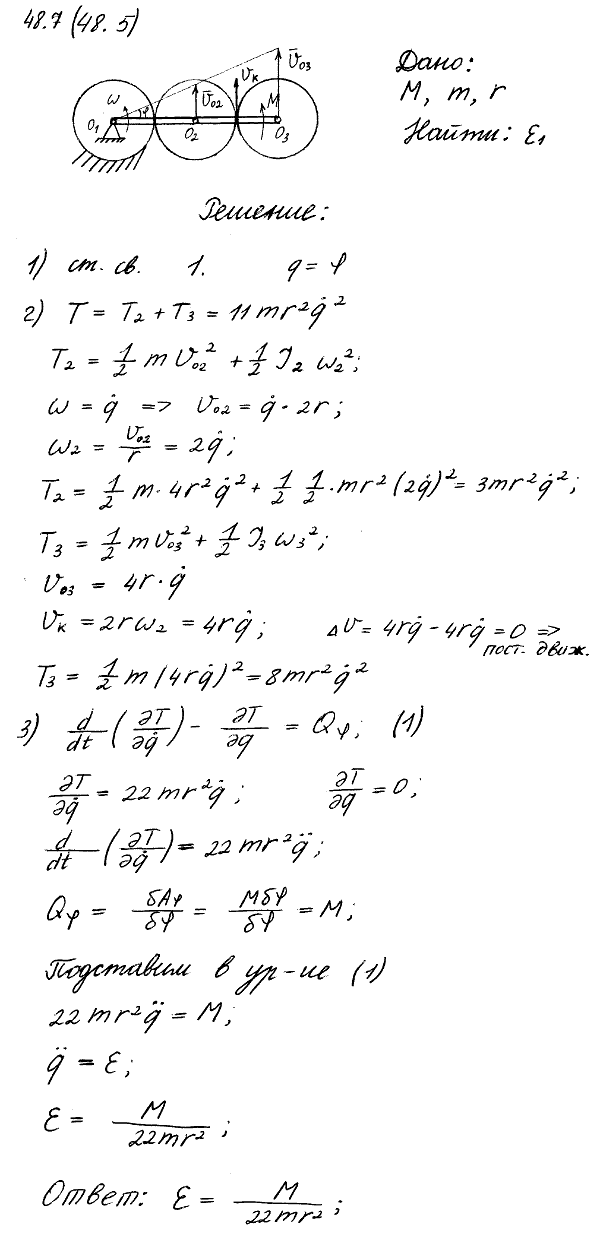 48.7 (48.5)
ω φ O₁ V̄₀₂ O₂ V_к M V̄₀₃ O₃
Дано:
M, m, r
Найти: ε₁
Решение:
1) ст. св. 1. q = φ
2) T = T₂ + T₃ = 11mr²q̇²
T₂ = 1/2 m V₀₂² + 1/2 J₂ ω₂²;
ω = q̇ => V₀₂ = q̇ · 2r;
ω₂ = V₀₂/r = 2q̇;
T₂ = 1/2 m · 4r²q̇² + 1/2 1/2 · mr²(2q̇)² = 3mr²q̇²;
T₃ = 1/2 m V₀₃² + 1/2 J₃ ω₃²;
V₀₃ = 4r · q̇
V_к = 2rω₂ = 4rq̇; ΔV = 4rq̇ - 4rq̇ = 0 =>
пост. движ.
T₃ = 1/2 m (4rq̇)² = 8mr²q̇²
3) d/dt (∂T/∂q̇) - ∂T/∂q = Qφ; (1)
∂T/∂q̇ = 22mr²q̇; ∂T/∂q = 0;
d/dt (∂T/∂q̇) = 22mr²q̈;
Qφ = δAφ/δφ = Mδφ/δφ = M;
Подставим в ур-ие (1)
22mr²q̈ = M;
q̈ = ε;
ε = M/22mr²;
Ответ: ε = M/22mr²;